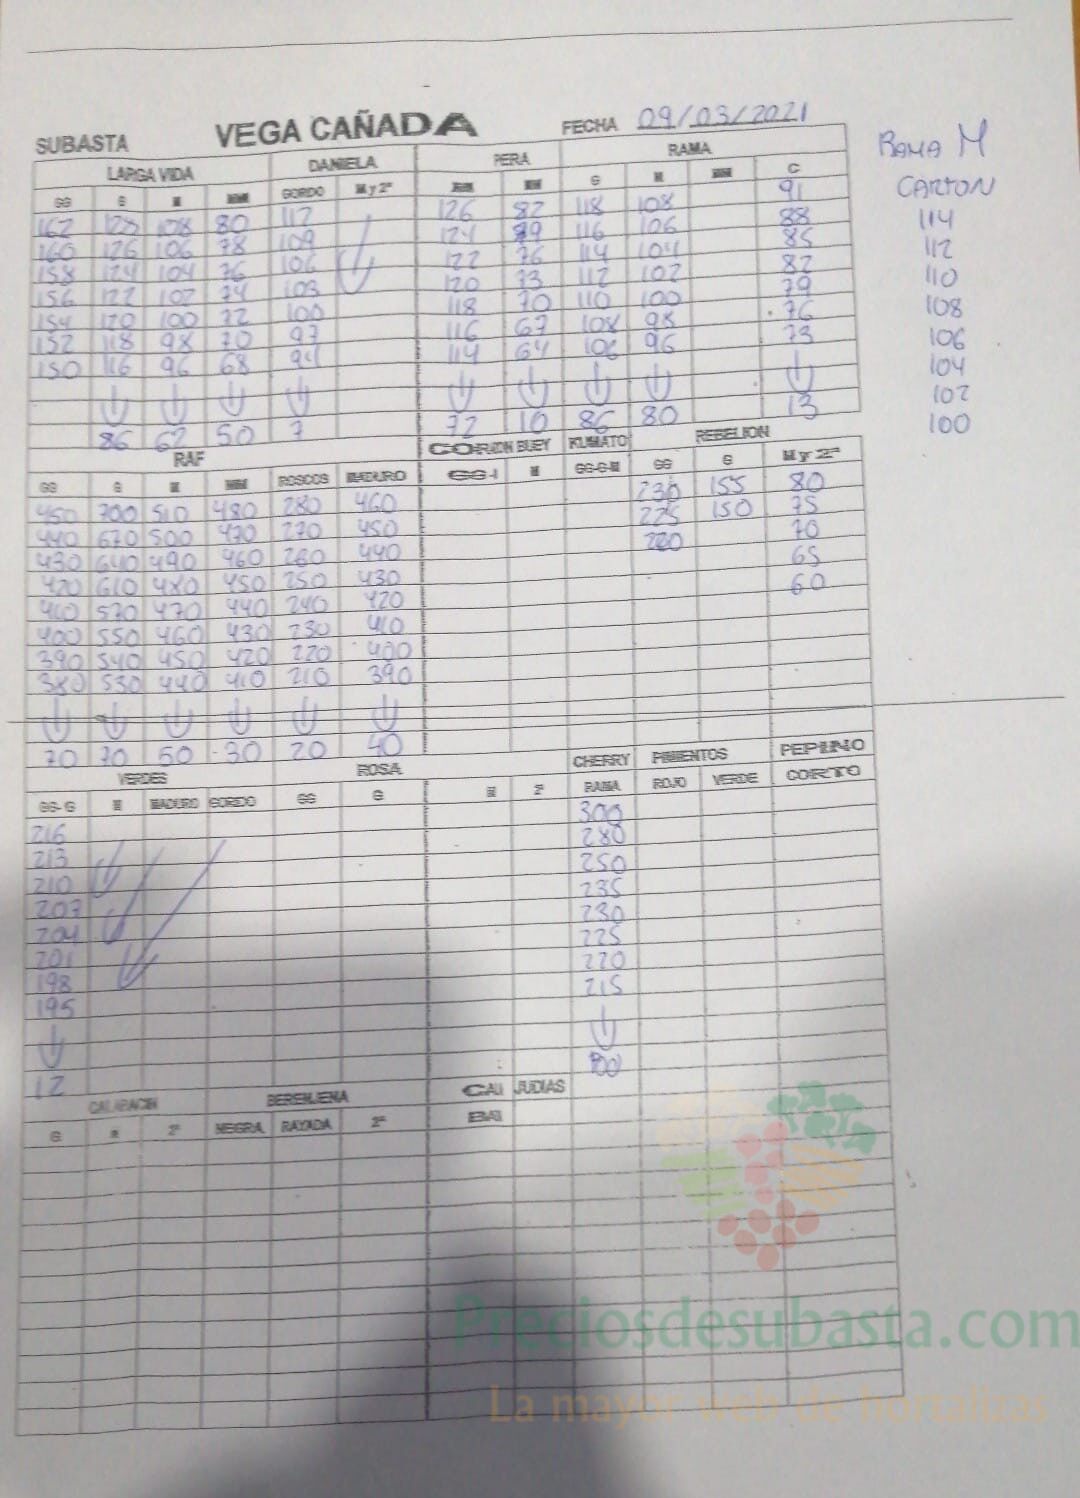 SUBASTA VEGA CAÑADA FECHA 09/03/2021
LARGA VIDA DANIELA PERA RAMA
GG G M MM GORDO M y 2ª MM G M MM C
91
162 128 108 80 112 126 82 118 108 88
160 126 106 78 109 124 79 116 106 85
158 124 104 76 106 122 76 114 104 82
156 122 102 74 103 120 73 112 102 79
154 120 100 72 100 118 70 110 100 76
152 118 98 70 97 116 67 108 98 73
150 116 96 68 94 114 64 106 96
86 62 50 7 72 10 86 80 13
RAMA M
CARTON
114
112
110
108
106
104
102
100
RAF CORAZON BUEY KUMATO REBELION
GG G M MM ROSCOS MADURO M GG-G-M GG G M y 2ª
450 700 510 480 280 460 230 155 80
440 670 500 470 270 450 225 150 75
430 640 490 460 260 440 220 70
420 610 480 450 250 430 65
410 570 470 440 240 420 60
400 550 460 430 230 410
390 540 450 420 220 400
380 530 440 410 210 390
70 70 50 30 20 40
VERDES ROSA CHERRY PIMIENTOS PEPINO
GG-G M MADURO GORDO GG G M 2ª RAMA ROJO VERDE CORTO
300
216 280
213 250
210 235
207 230
204 225
201 220
198 215
195
12
CALABACIN BERENJENA JUDIAS
G M 2ª NEGRA RAYADA 2ª
Preciosdesubasta.com
La mayor web de hortalizas